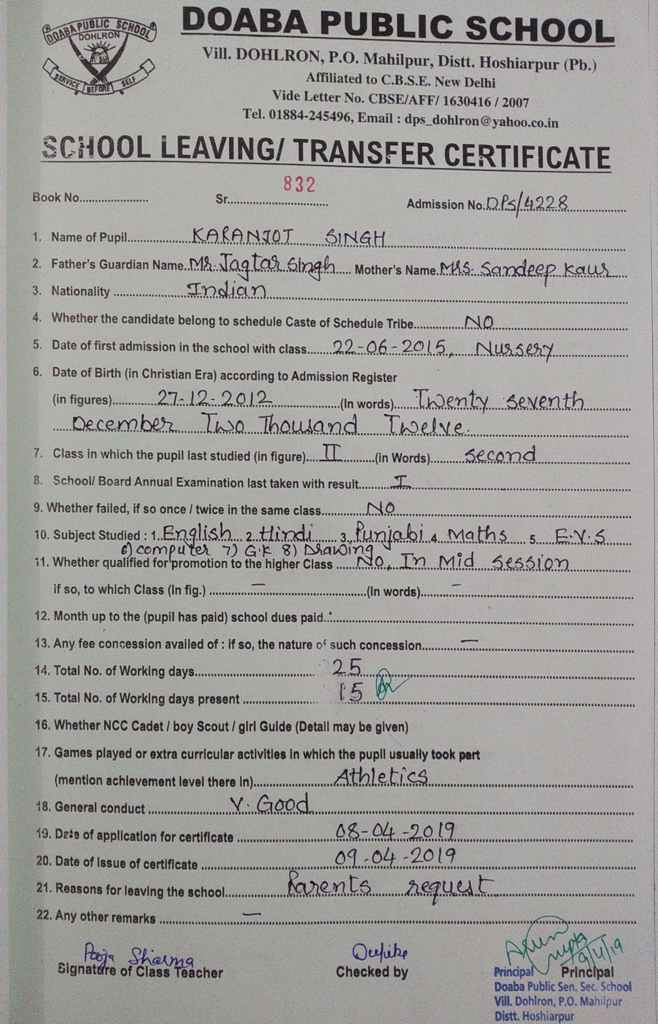 DOABA PUBLIC SCHOOL
DOHLRON
SERVICE BEFORE SELF
DOABA PUBLIC SCHOOL
Vill. DOHLRON, P.O. Mahilpur, Distt. Hoshiarpur (Pb.)
Affiliated to C.B.S.E. New Delhi
Vide Letter No. CBSE/AFF/ 1630416 / 2007
Tel. 01884-245496, Email : dps_dohlron@yahoo.co.in
SCHOOL LEAVING/ TRANSFER CERTIFICATE
Book No..................... Sr. 832 Admission No. DPS/4228
1. Name of Pupil KARANJOT SINGH
2. Father's Guardian Name Mr. Jagtar Singh Mother's Name Mrs. Sandeep Kaur
3. Nationality Indian
4. Whether the candidate belong to schedule Caste of Schedule Tribe NO
5. Date of first admission in the school with class 22-06-2015, Nursery
6. Date of Birth (in Christian Era) according to Admission Register
(in figures) 27-12-2012 (In words) Twenty seventh
December Two Thousand Twelve.
7. Class in which the pupil last studied (in figure) II (in Words) second
8. School/ Board Annual Examination last taken with result I
9. Whether failed, if so once / twice in the same class NO
10. Subject Studied : 1. English 2. Hindi 3. Punjabi 4. Maths 5. E.V.S
6) computer 7) G.K 8) Drawing
11. Whether qualified for promotion to the higher Class No, In Mid Session
if so, to which Class (In fig.) – (In words) –
12. Month up to the (pupil has paid) school dues paid
13. Any fee concession availed of : if so, the nature of such concession –
14. Total No. of Working days 25
15. Total No. of Working days present 15
16. Whether NCC Cadet / boy Scout / girl Guide (Detail may be given)
17. Games played or extra curricular activities in which the pupil usually took part
(mention achievement level there in) Athletics
18. General conduct V. Good
19. Date of application for certificate 08-04-2019
20. Date of Issue of certificate 09-04-2019
21. Reasons for leaving the school Parents request
22. Any other remarks –
Pooja Sharma
Signature of Class Teacher
Checked by
Arun Gupta
9/4/19
Principal Principal
Doaba Public Sen. Sec. School
Vill. Dohlron, P.O. Mahilpur
Distt. Hoshiarpur